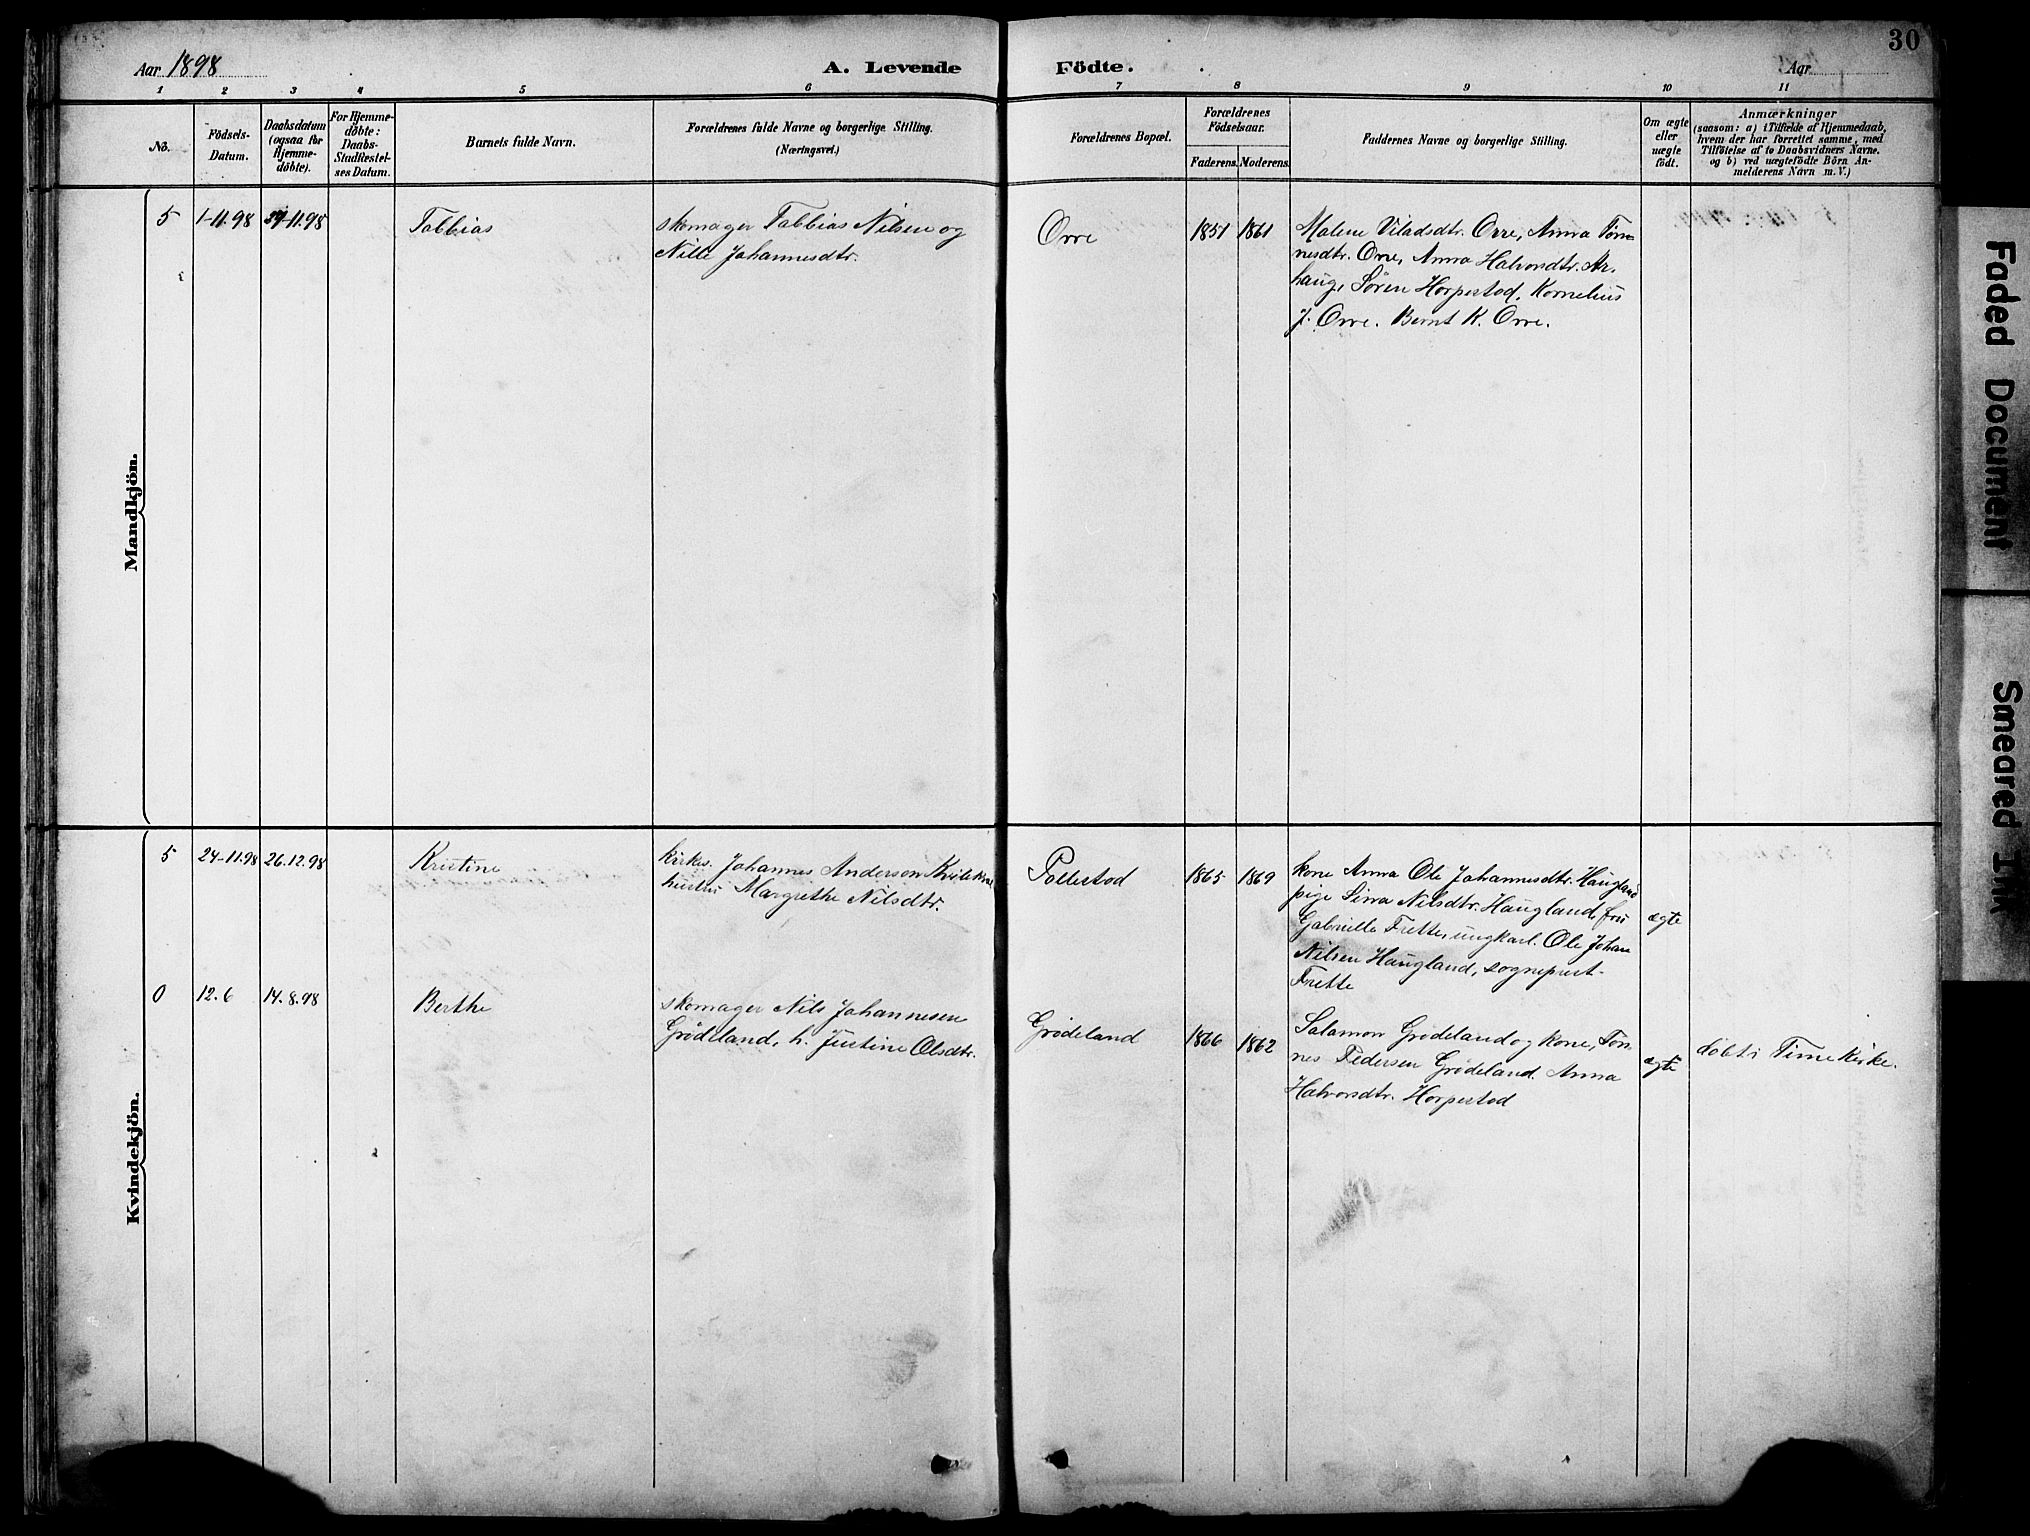 Aar 1898
A. Levende Födte.
Aar
30
1 2 3 4 5 6 7 8 9 10 11
No.
Födsels-Datum.
Daabsdatum (ogsaa for Hjemme-döbte).
For Hjemme-döbte: Daabs-Stadfæstel-ses Datum.
Barnets fulde Navn.
Forældrenes fulde Navne og borgerlige Stilling.
(Næringsvei.)
Forældrenes Bopæl.
Forældrenes Födselsaar.
Faderens. Moderens.
Faddernes Navne og borgerlige Stilling.
Om ægte eller uægte födt.
Anmærkninger
(saasom: a) i Tilfælde af Hjemmedaab,
hvem der har forrettet samme, med
Tilföielse af to Daabsvidners Navne.
og b) ved uægtefödte Börn An-
melderens Navn m.V.)
Mandkjön.
5 1-11.98
Tobbias
skomager Tobbias Nilsen og
Nille Johannesdtr.
Orre
1851 1861
Malene Viladsdtr. Orre, Anna Tøn-
nesdtr. Orre, Anna Halvorsdtr. Aar-
haug, Søren Horpestad, Kornelius
J. Orre. Bernt K. Orre.
Kvindekjön.
5 24-11.98 26.12.98
Kristine
kirkes. Johannes Anderson
hustru Margrethe Nilsdtr.
Pollestad
1865 1869
kone Anna Ole Johannesdtr. Haugland
pige Sina Nilsdtr. Haugland, fru
Gabrielle Frette, ungkarl. Ole Johan
Nilsen Haugland, sogneprest-
Frette
ægte
0 12.6 14.8.98
Berthe
skomager Nils Johannesen
Grödeland, h. Justine Olsdtr.
Grødeland
1866 1862
Salamon Grødeland og kone, Tøn-
nes Pedersen Grødeland. Anna
Halvorsdtr. Horpestad
ægte
døbt i Time Kirke.
Faded Document
Smeared Ink